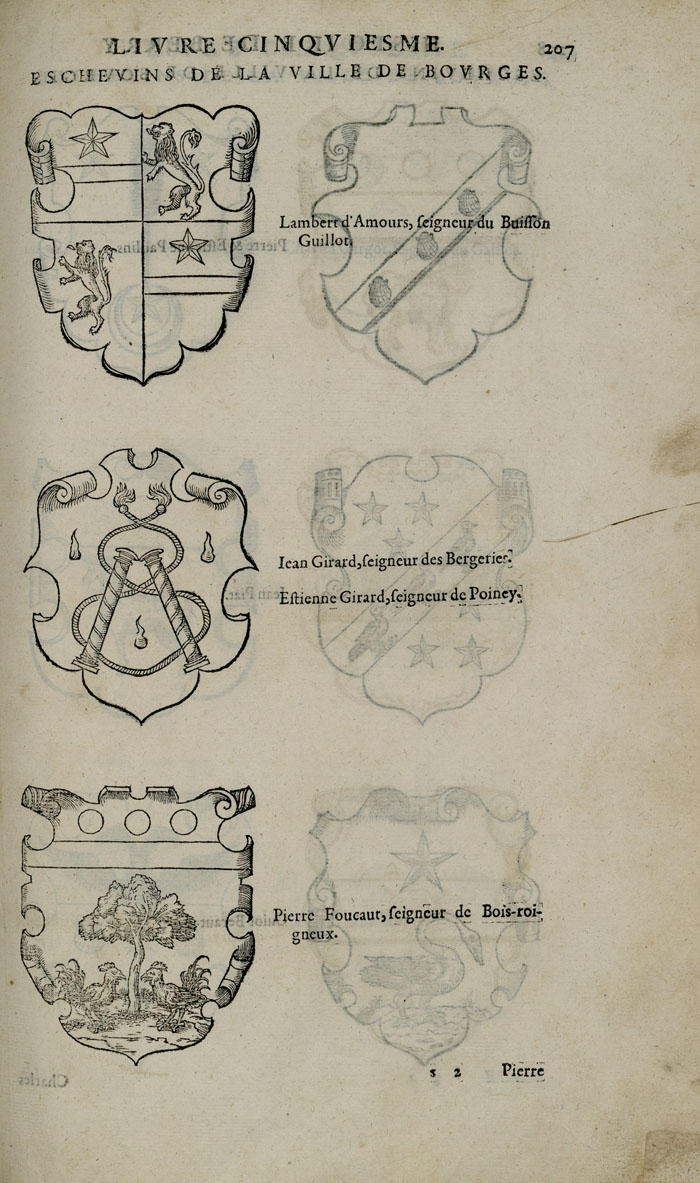 LIVRE CINQVIESME. 207
ESCHEVINS DE LA VILLE DE BOVRGES.
Lambert d'Amours, ſeigneur du Buiſſon
Guillot.
Iean Girard, ſeigneur des Bergeries.
Eſtienne Girard, ſeigneur de Poincy.
Pierre Foucaut, ſeigneur de Bois-roi-
gneux.
s 2 Pierre